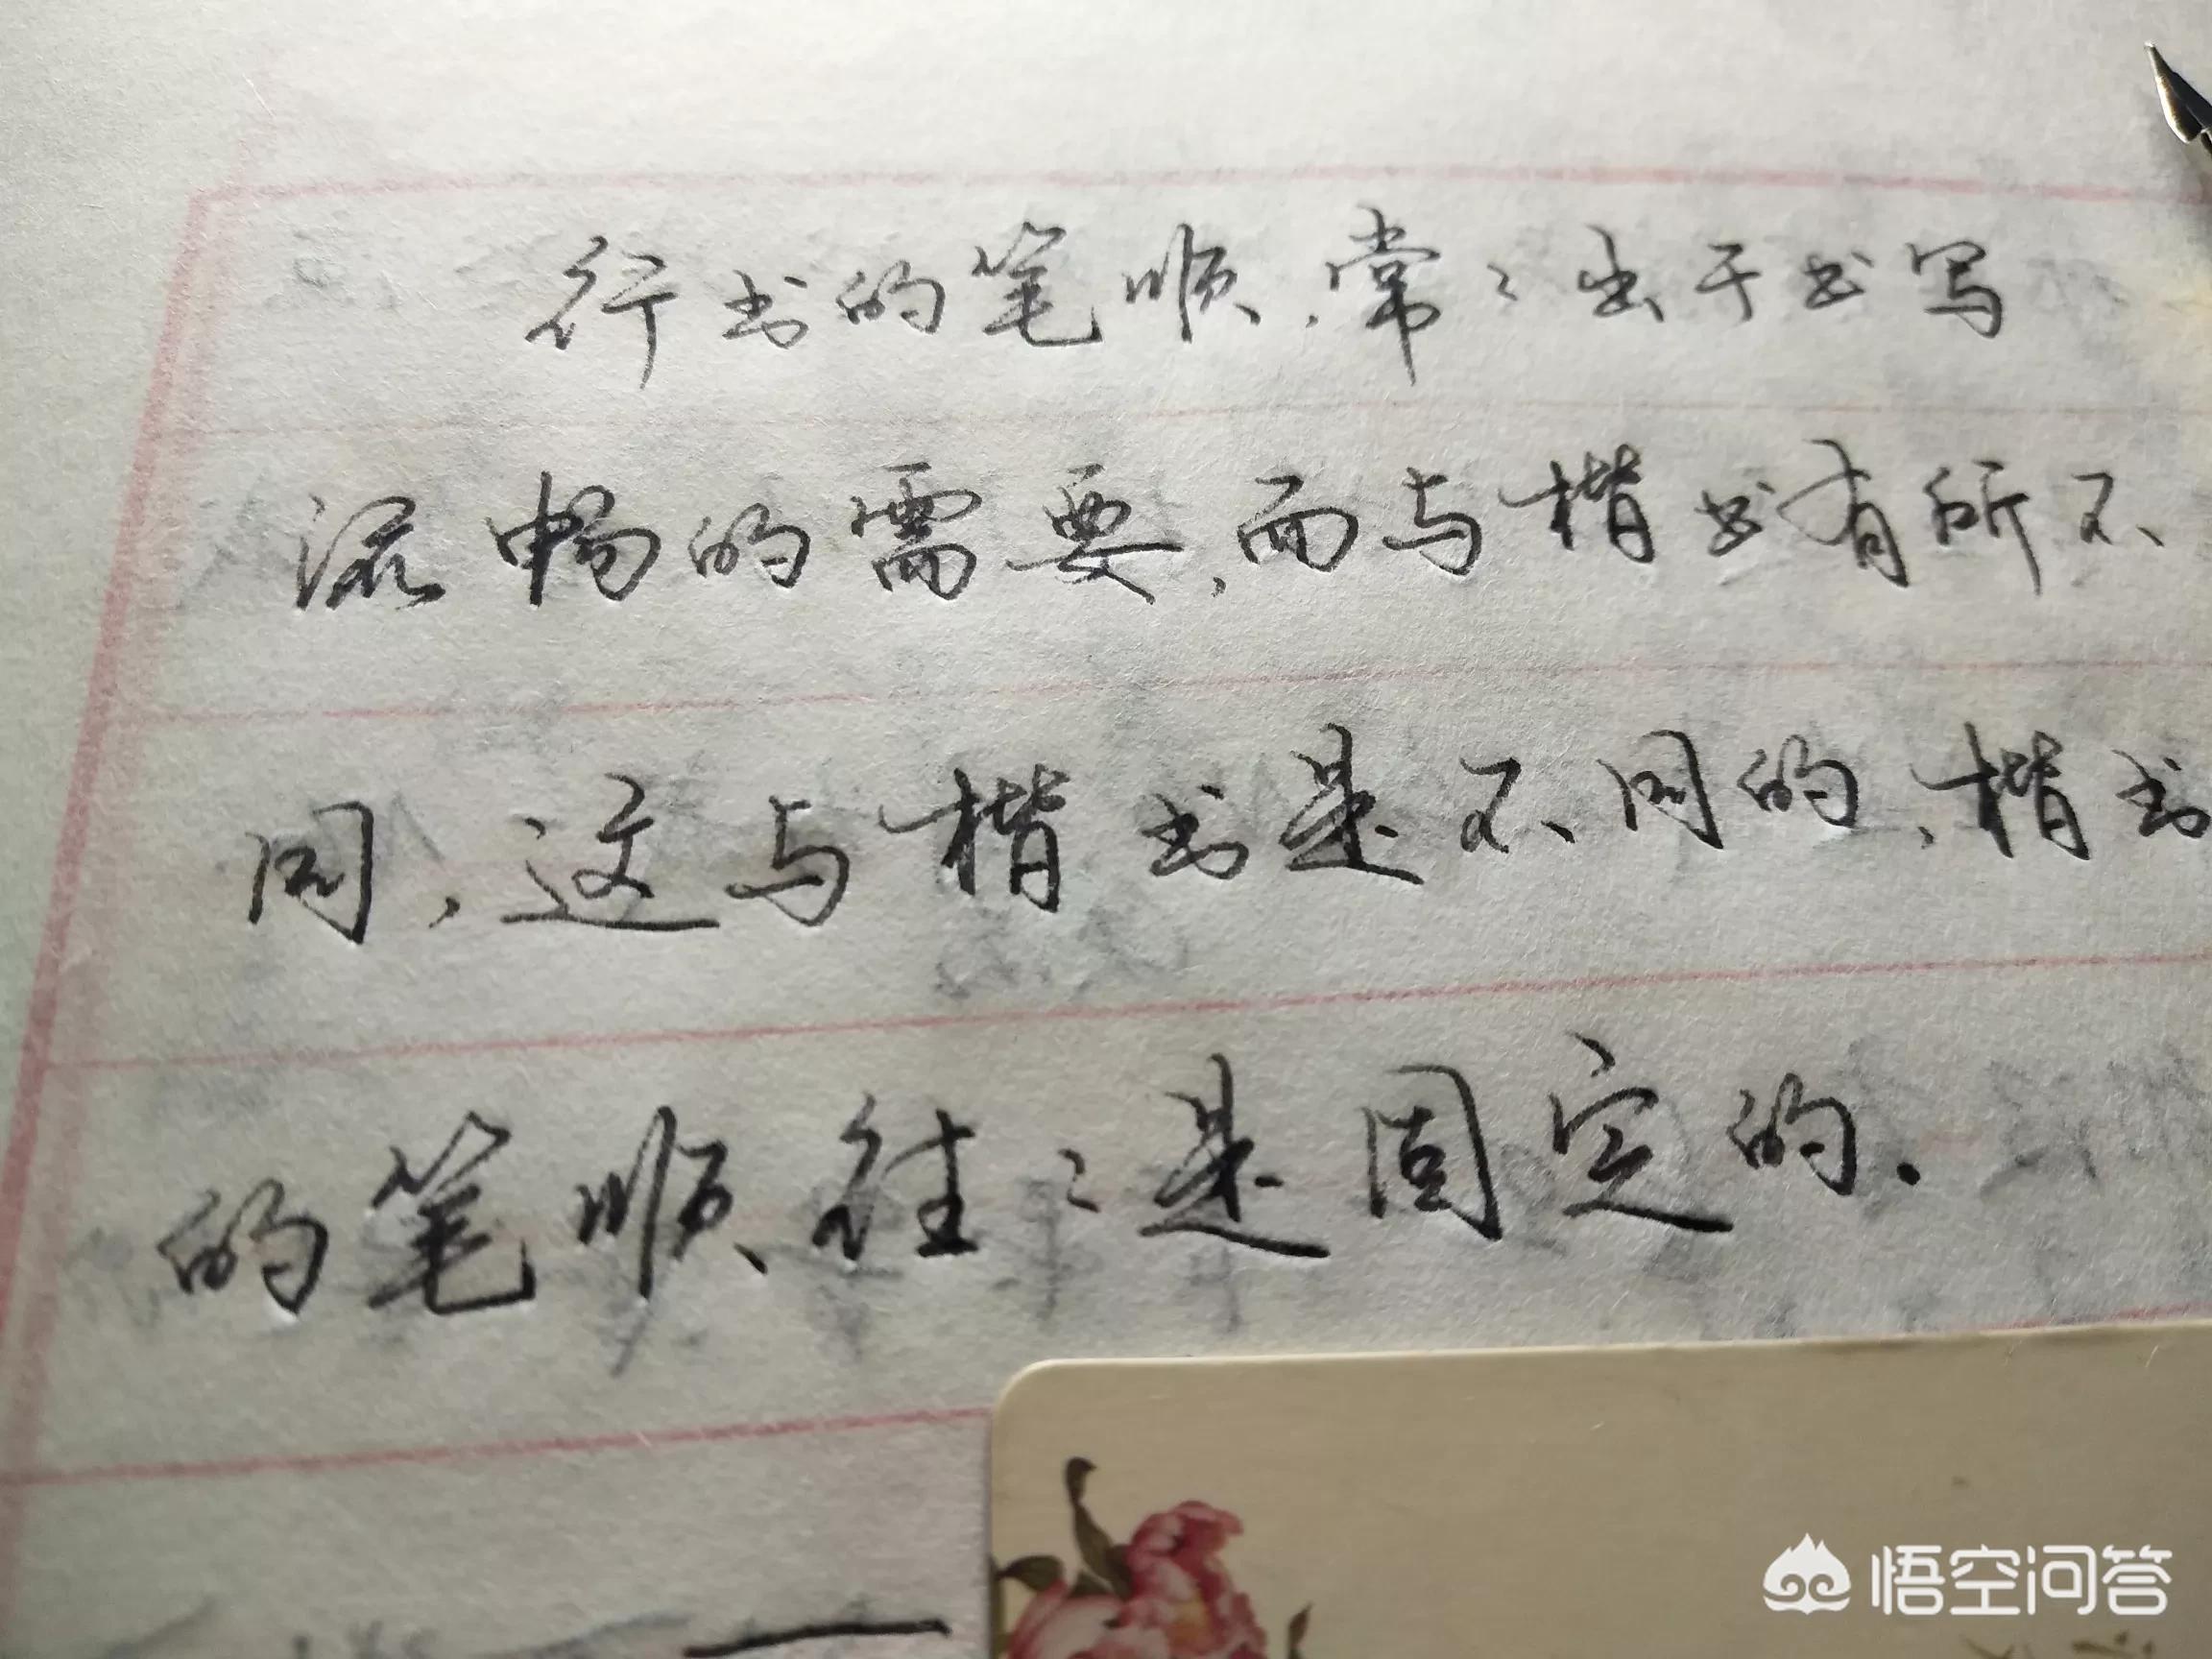 行书的笔顺,常々出于书写
流畅的需要,而与楷书有所不
同,这与楷书是不同的,楷书
的笔顺往々是固定的.
悟空问答